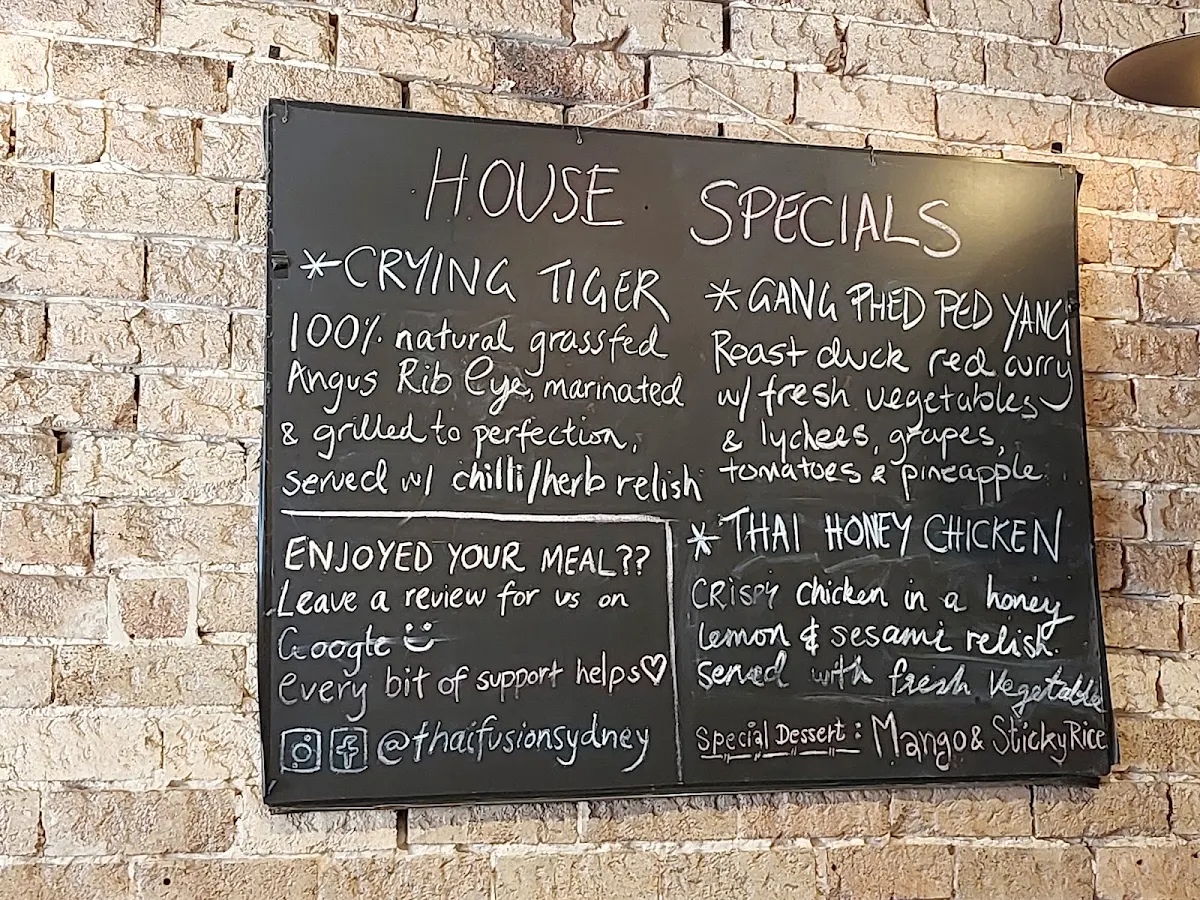 HOUSE SPECIALS
*CRYING TIGER
100% natural grassfed
Angus Rib Eye, marinated
& grilled to perfection,
served w/ chilli/herb relish
*GANG PHED PED YANG
Roast duck red curry
w/ fresh vegetables
& lychees, grapes,
tomatoes & pineapple
*THAI HONEY CHICKEN
CRISPY chicken in a honey
lemon & sesame relish.
Served with fresh vegetable
Special Dessert: Mango & Sticky Rice
ENJOYED YOUR MEAL??
Leave a review for us on
Google
every bit of support helps♡
@thaifusionsydney